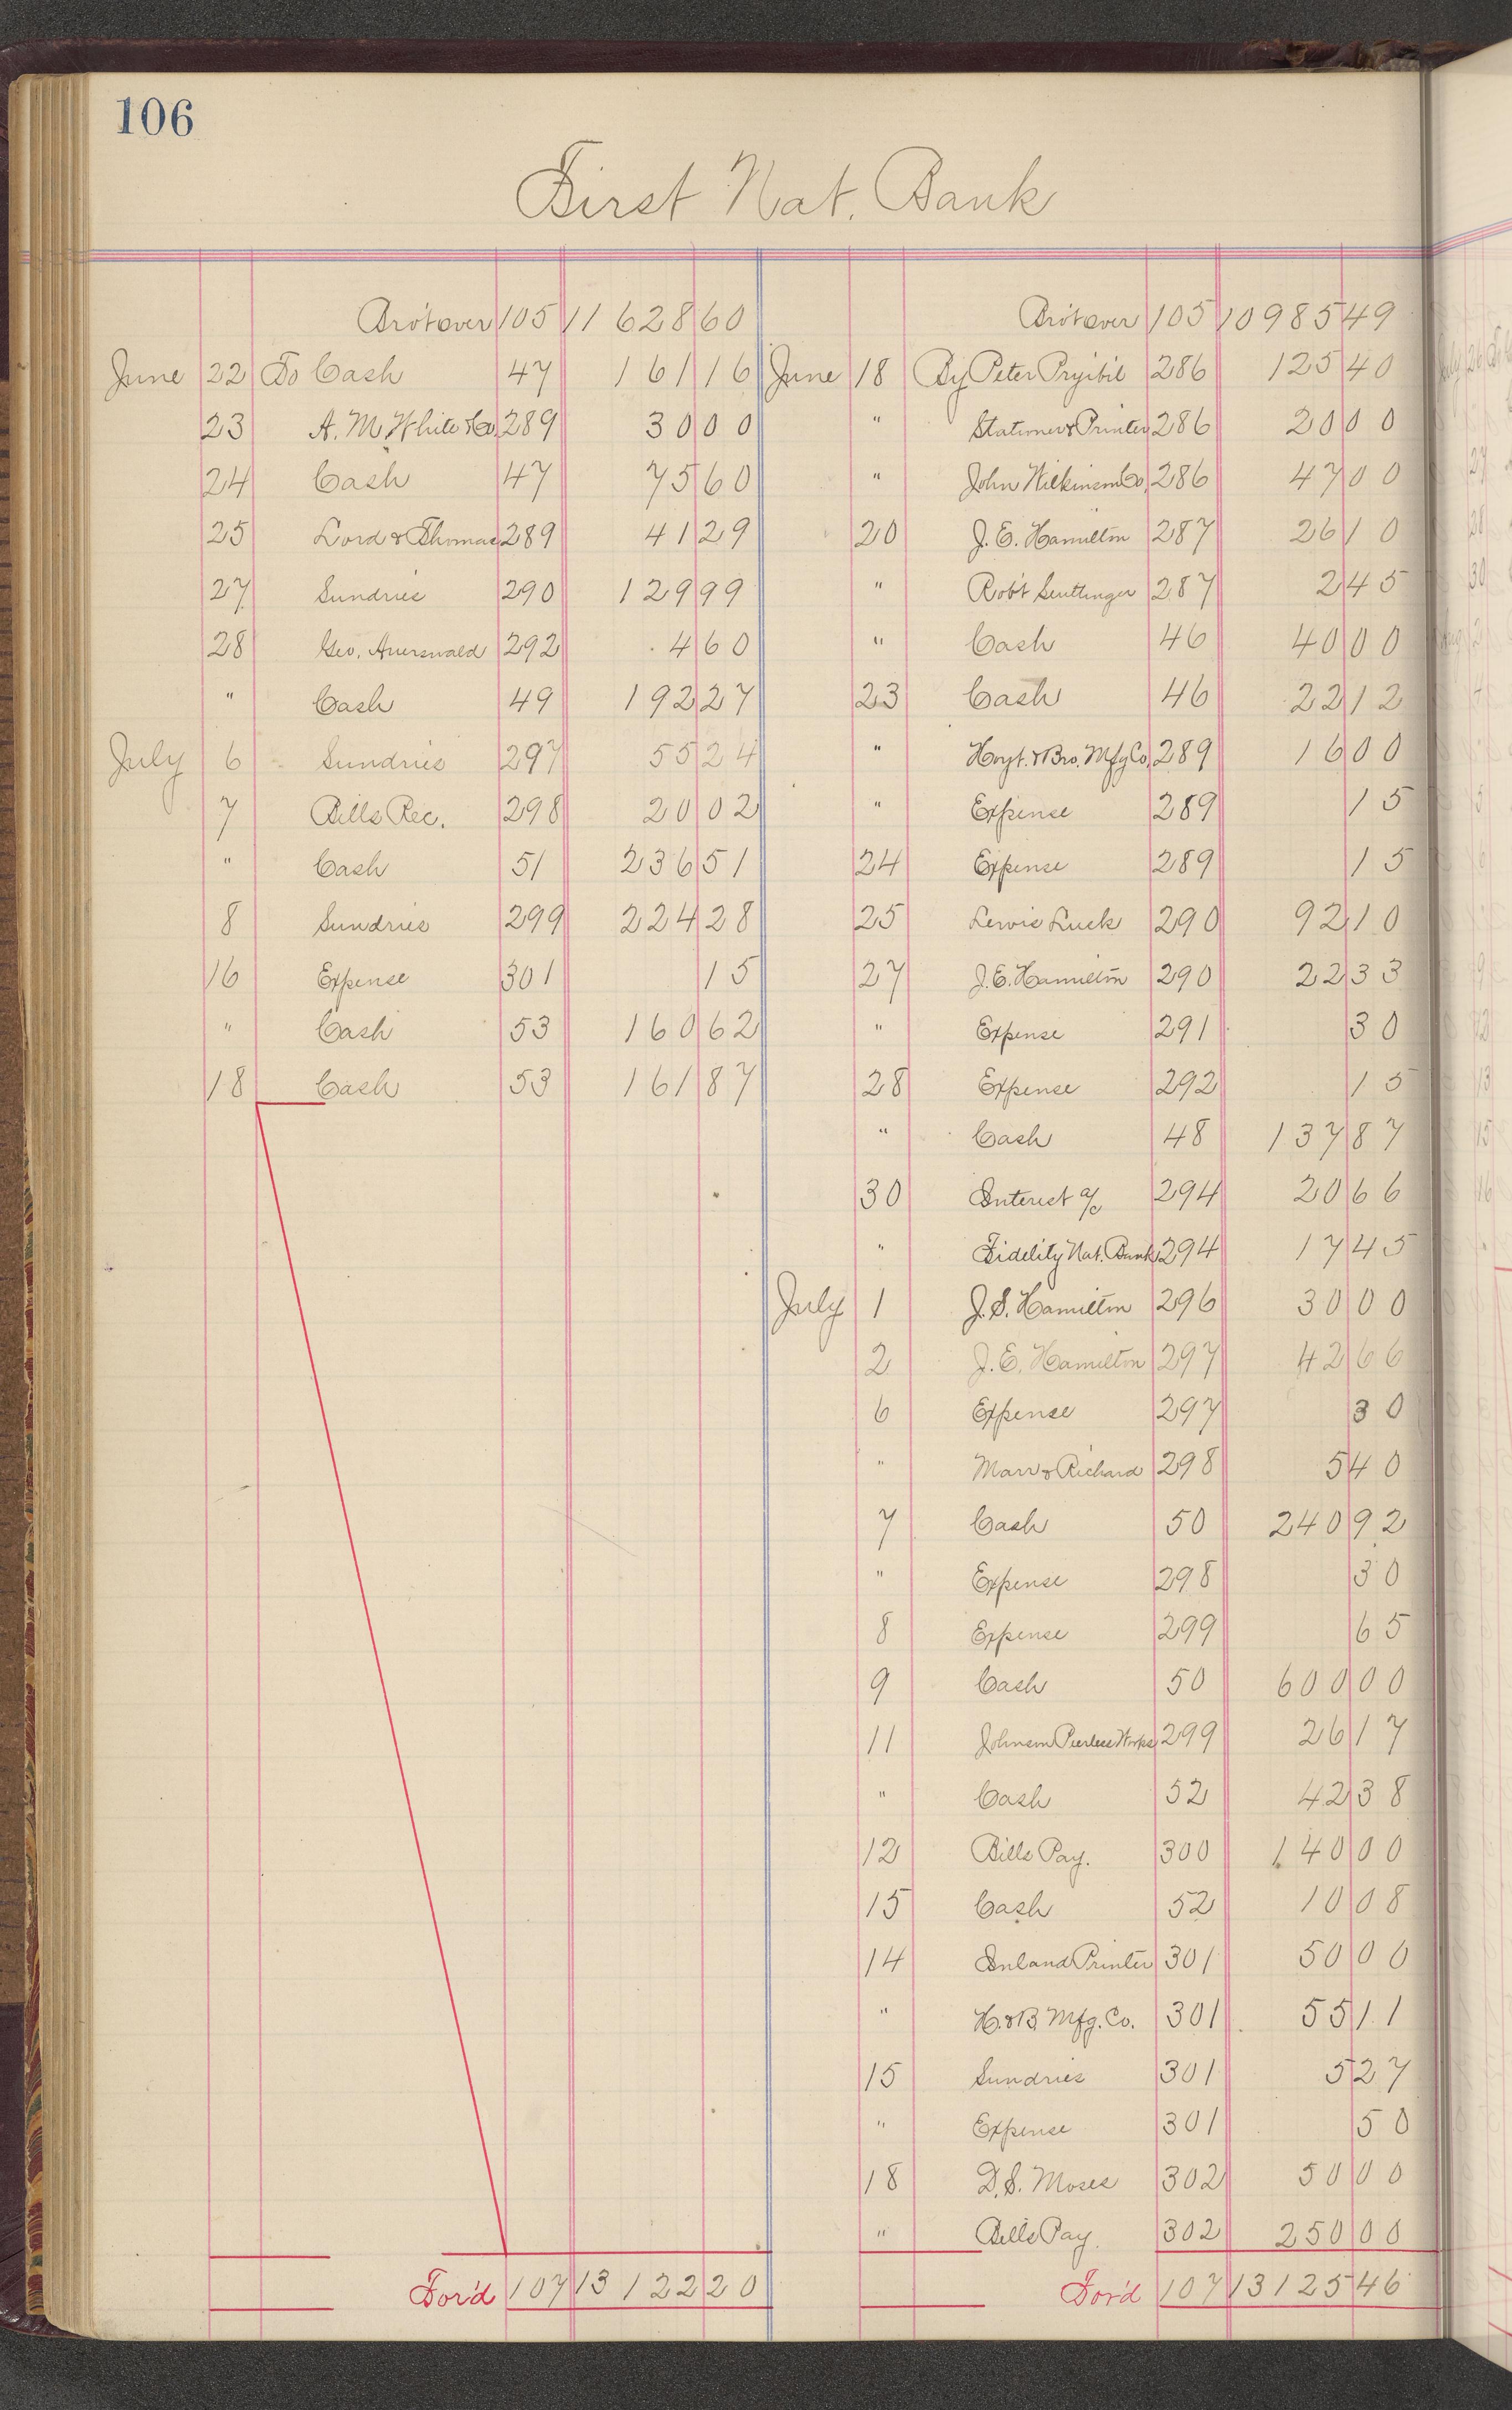 106
First Nat. Bank
Bro't over 105 11 628 60
June 22 To Cash 47 161 16
23 A. M. White & Co. 289 30 00
24 Cash 47 75 60
25 Lord & Thomas 289 41 29
27 Sundries 290 129 99
28 Geo. Auerswald 292 4 60
" Cash 49 192 27
July 6 Sundries 297 55 24
7 Bills Rec. 298 20 02
" Cash 51 236 51
8 Sundries 299 224 28
16 Expense 301 15
" Cash 53 160 62
18 Cash 53 161 87
For'd 107 13 122 20
Bro't over 105 10 985 49
June 18 By Peter Pryibil 286 125 40
" Stationer & Printer 286 20 00
" John Wilkinson Co. 286 47 00
20 J. E. Hamilton 287 26 10
" Rob't 287 2 45
" Cash 46 40 00
23 Cash 46 22 12
" Hoyt. & Bro. Mfg Co. 289 16 00
" Expense 289 15
24 Expense 289 15
25 Lewis Luck 290 92 10
27 J. E. Hamilton 290 22 33
" Expense 291 30
28 Expense 292 15
" Cash 48 137 87
30 Interest a/c 294 20 66
" Fidelity Nat. Bank 294 17 45
July 1 J. S. Hamilton 296 30 00
2 J. E. Hamilton 297 42 66
6 Expense 297 30
" Marr & Richard 298 5 40
7 Cash 50 240 92
" Expense 298 30
8 Expense 299 65
9 Cash 50 600 00
11 Johnson Peerless Works 299 26 17
" Cash 52 42 38
12 Bills Pay. 300 140 00
15 Cash 52 10 08
14 Inland Printer 301 50 00
" H. & B. Mfg. Co. 301 55 11
15 Sundries 301 5 27
" Expense 301 50
18 D. S. Moses 302 50 00
" Bills Pay. 302 250 00
For'd 107 13 125 46